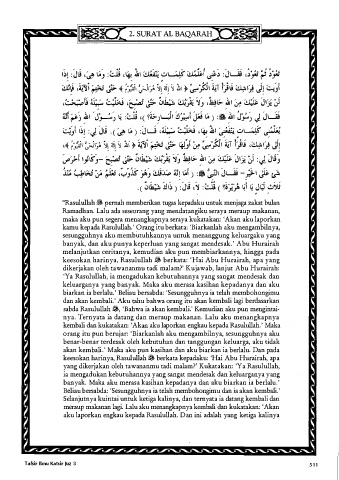 2. SURAT AL BAQARAH
تَعُودُ ثُمَّ تَعُودُ، فَقَـــالَ: دَعْنِي أُعَلِّمْكَ كَلِمَــاتٍ يَنْفَعُكَ اللهُ بِهَا، قُلْتُ: وَمَا هِيَ، قَالَ: إِذَا
أَوَيْتَ إِلَى فِرَاشِكَ فَاقْرَأْ آيَةَ الْكُرْسِيِّ ﴿ اللهُ لَا إِلَهَ إِلَّا هُوَ الْحَيُّ الْقَيُّومُ ﴾ حَتَّى تَخْتِمَ الْآيَةَ، فَإِنَّكَ
لَنْ يَزَالَ عَلَيْكَ مِنَ اللهِ حَافِظٌ، وَلَا يَقْرَبُكَ شَيْطَانٌ حَتَّى تُصْبِحَ، فَخَلَّيْتُ سَبِيْلَهُ فَأَصْبَحْتُ،
فَقَــالَ لِي رَسُوْلُ اللهِ ﷺ: ( مَا فَعَلَ أَسِيْرُكَ الْبَــارِحَةَ؟ )، قُلْتُ: يَا رَسُــوْلَ اللهِ زَعَمَ أَنَّهُ
يُعَلِّمُنِي كَلِمَــاتٍ يَنْفَعُنِيَ اللهُ بِهَا، فَخَلَّيْتُ سَبِيْلَهُ، قَــالَ: ( مَا هِيَ ). قَالَ لِي: إِذَا أَوَيْتَ
إِلَى فِرَاشِكَ، فَاقْرَأْ آيَةَ الْكُرْسِيِّ مِنْ أَوَّلِهَا حَتَّى تَخْتِمَ الْآيَةَ ﴿ اللهُ لَا إِلَهَ إِلَّا هُوَ الْحَيُّ الْقَيُّومُ ﴾،
وَقَالَ لِي: لَنْ يَزَالَ عَلَيْكَ مِنَ اللهِ حَافِظٌ وَلَا يَقْرَبُكَ شَيْطَانٌ حَتَّى تُصْبِحَ –وَكَانُوا أَحْرَصَ
شَيْءٍ عَلَى الْخَيْرِ– فَقَــالَ النَّبِيُّ ﷺ: ( أَمَا إِنَّهُ صَدَقَكَ وَهُوَ كَذُوْبٌ، تَعْلَمُ مَنْ تُخَاطِبُ مُنْذُ
ثَلَاثِ لَيَالٍ يَا أَبَا هُرَيْرَةَ؟ ) قُلْتُ: لَا، قَالَ: ( ذَاكَ شَيْطَانٌ ).
"Rasulullah ﷺ pernah memberikan tugas kepadaku untuk menjaga zakat bulan
Ramadhan. Lalu ada seseorang yang mendatangiku seraya meraup makanan,
maka aku pun segera menangkapnya seraya kukatakan: 'Akan aku laporkan
kamu kepada Rasulullah.' Orang itu berkata: 'Biarkanlah aku mengambilnya,
sesungguhnya aku membutuhkannya untuk menanggung keluargaku yang
banyak, dan aku punya keperluan yang sangat mendesak.' Abu Hurairah
melanjutkan ceritanya, kemudian aku pun membiarkannya, hingga pada
keesokan harinya, Rasulullah ﷺ berkata: 'Hai Abu Hurairah, apa yang
dikerjakan oleh tawananmu tadi malam?' Kujawab, lanjut Abu Hurairah:
'Ya Rasulullah, ia mengadukan kebutuhannya yang sangat mendesak dan
keluarganya yang banyak. Maka aku merasa kasihan kepadanya dan aku
biarkan ia berlalu.' Beliau bersabda: 'Sesungguhnya ia telah membohongimu
dan akan kembali.' Aku tahu bahwa orang itu akan kembali lagi berdasarkan
sabda Rasulullah ﷺ, 'Bahwa ia akan kembali.' Kemudian aku pun mengintai-
nya. Ternyata ia datang dan meraup makanan. Lalu aku menangkapnya
kembali dan kukatakan: 'Akan aku laporkan engkau kepada Rasulullah.' Maka
orang itu pun berujar: 'Biarkanlah aku mengambilnya, sesungguhnya aku
benar-benar terdesak oleh kebutuhan dan tanggungan keluarga, aku tidak
akan kembali.' Maka aku pun kasihan dan aku biarkan ia berlalu. Dan pada
keesokan harinya, Rasulullah ﷺ berkata kepadaku: 'Hai Abu Hurairah, apa
yang dikerjakan oleh tawananmu tadi malam?' Kukatakan: 'Ya Rasulullah,
ia mengadukan kebutuhannya yang sangat mendesak dan keluarganya yang
banyak. Maka aku merasa kasihan kepadanya dan aku biarkan ia berlalu.'
Beliau bersabda: 'Sesungguhnya ia telah membohongimu dan ia akan kembali.'
Selanjutnya kuintai untuk ketiga kalinya, dan ternyata ia datang kembali dan
meraup makanan lagi. Lalu aku menangkapnya kembali dan kukatakan: 'Akan
aku laporkan engkau kepada Rasulullah. Dan ini adalah yang ketiga kalinya
Tafsir Ibnu Katsir Juz 3
511